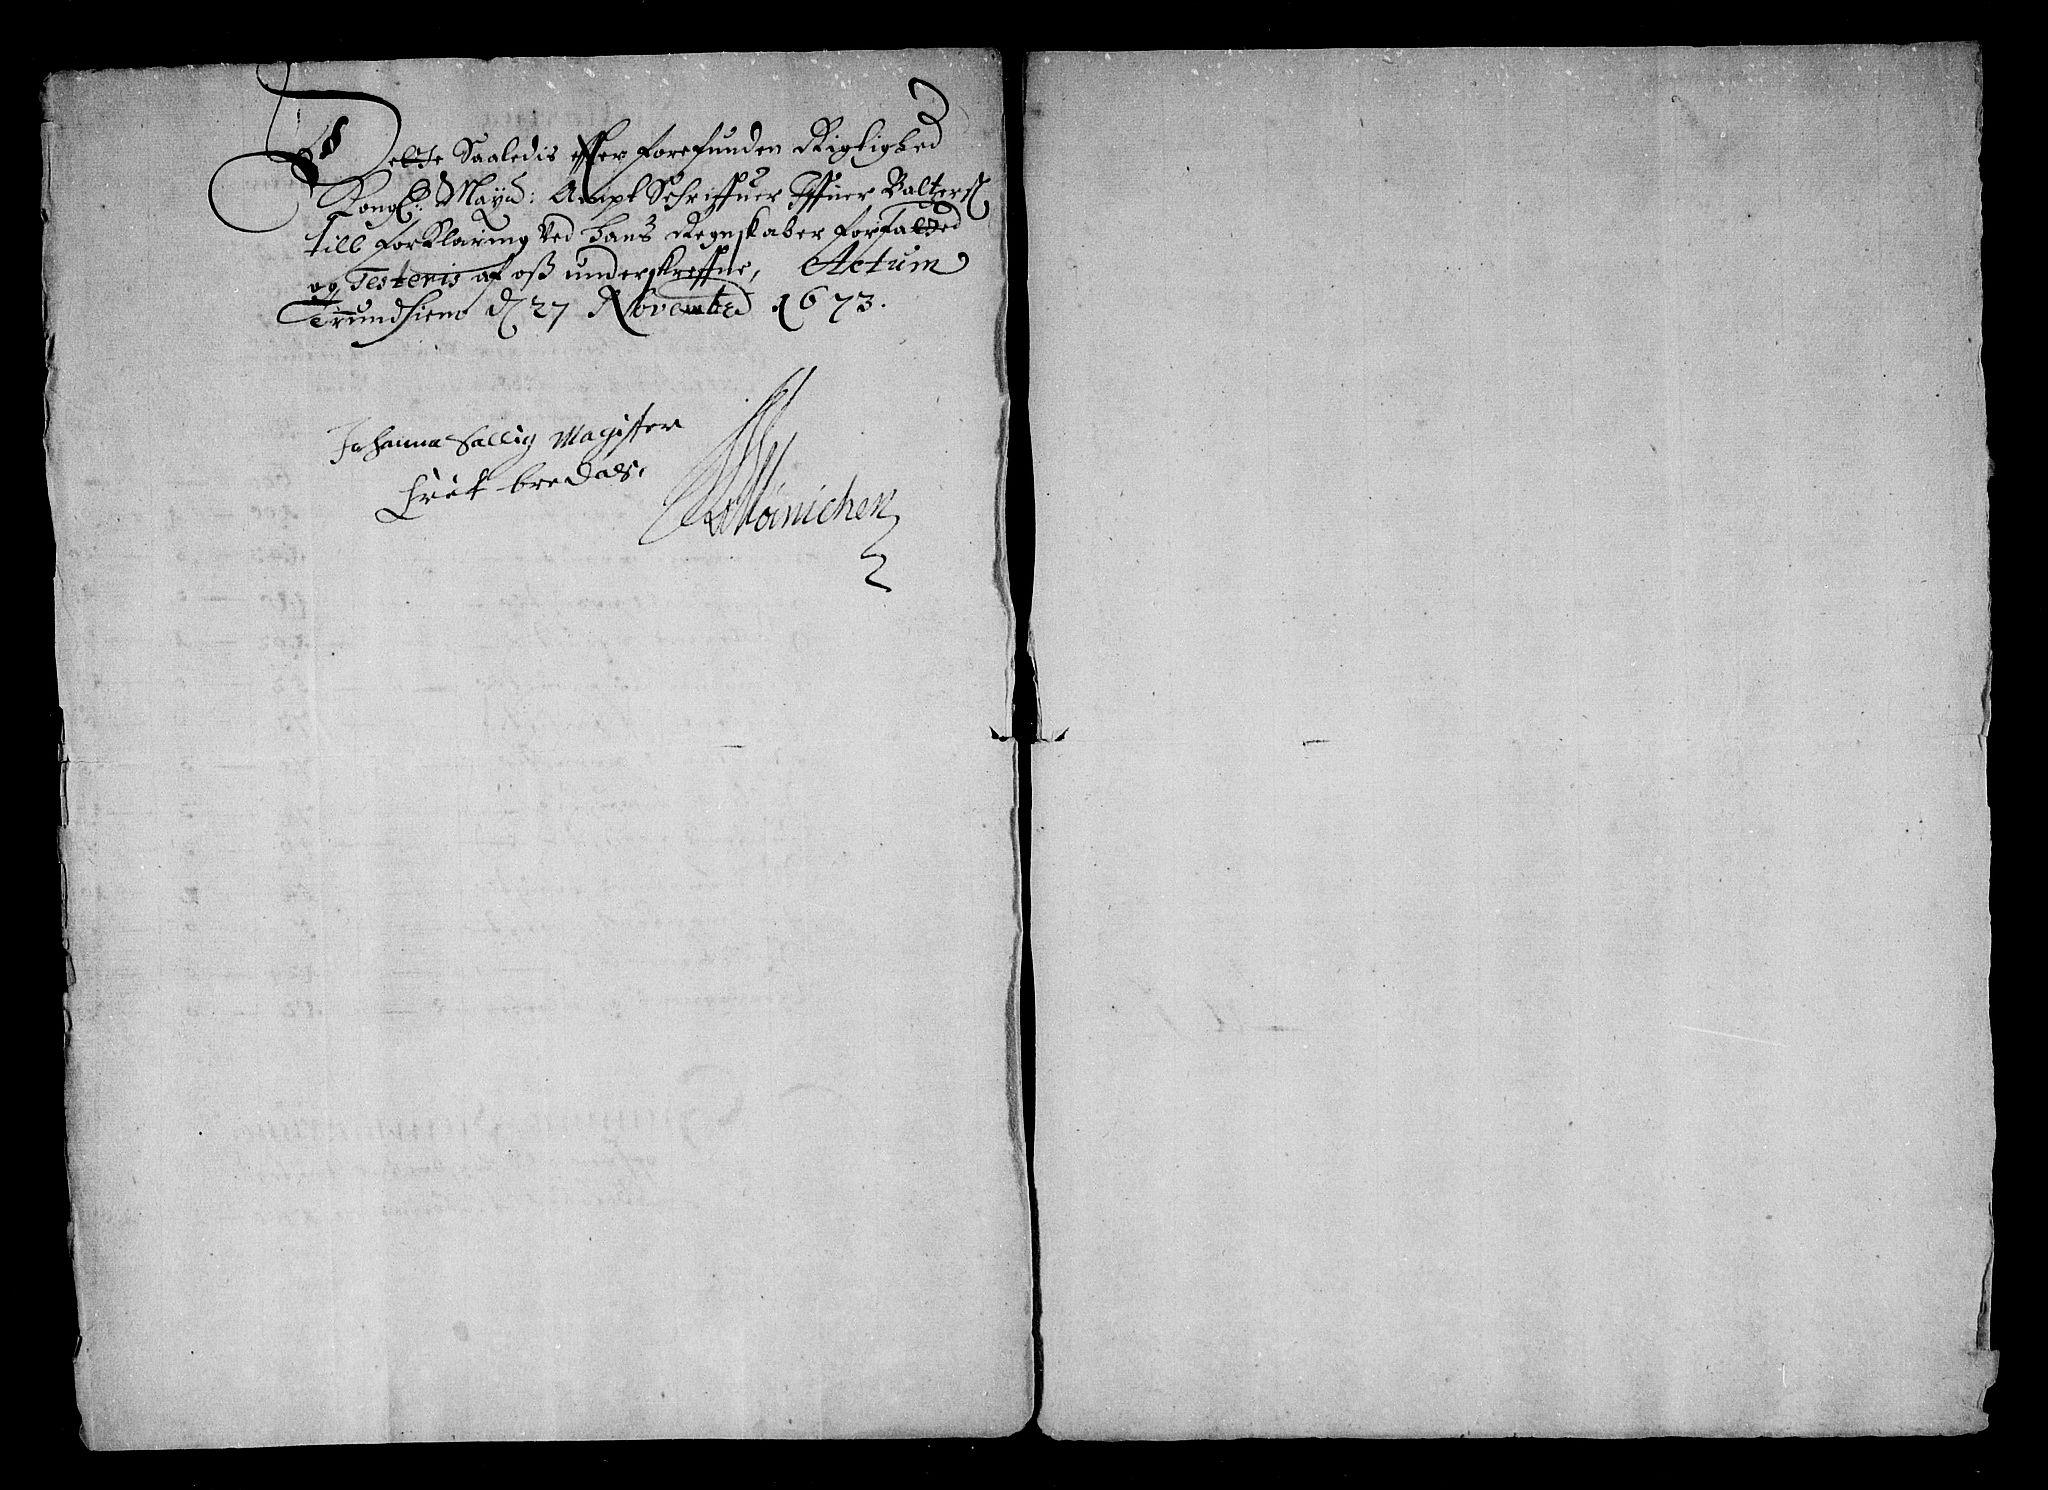 Dette Saaledis effter forefunden Rigtighed
Kongl: Mayd: Ampt Schriffuer Iffuer Baltzerß
till forKlaring Ved hans Regnskaber forfatted
og Testeris af oß underskreffne, Actum
Trundhiem d 27 Novembr 1673.
Johanna Sallig Magister
Erik bredals
Mönichen